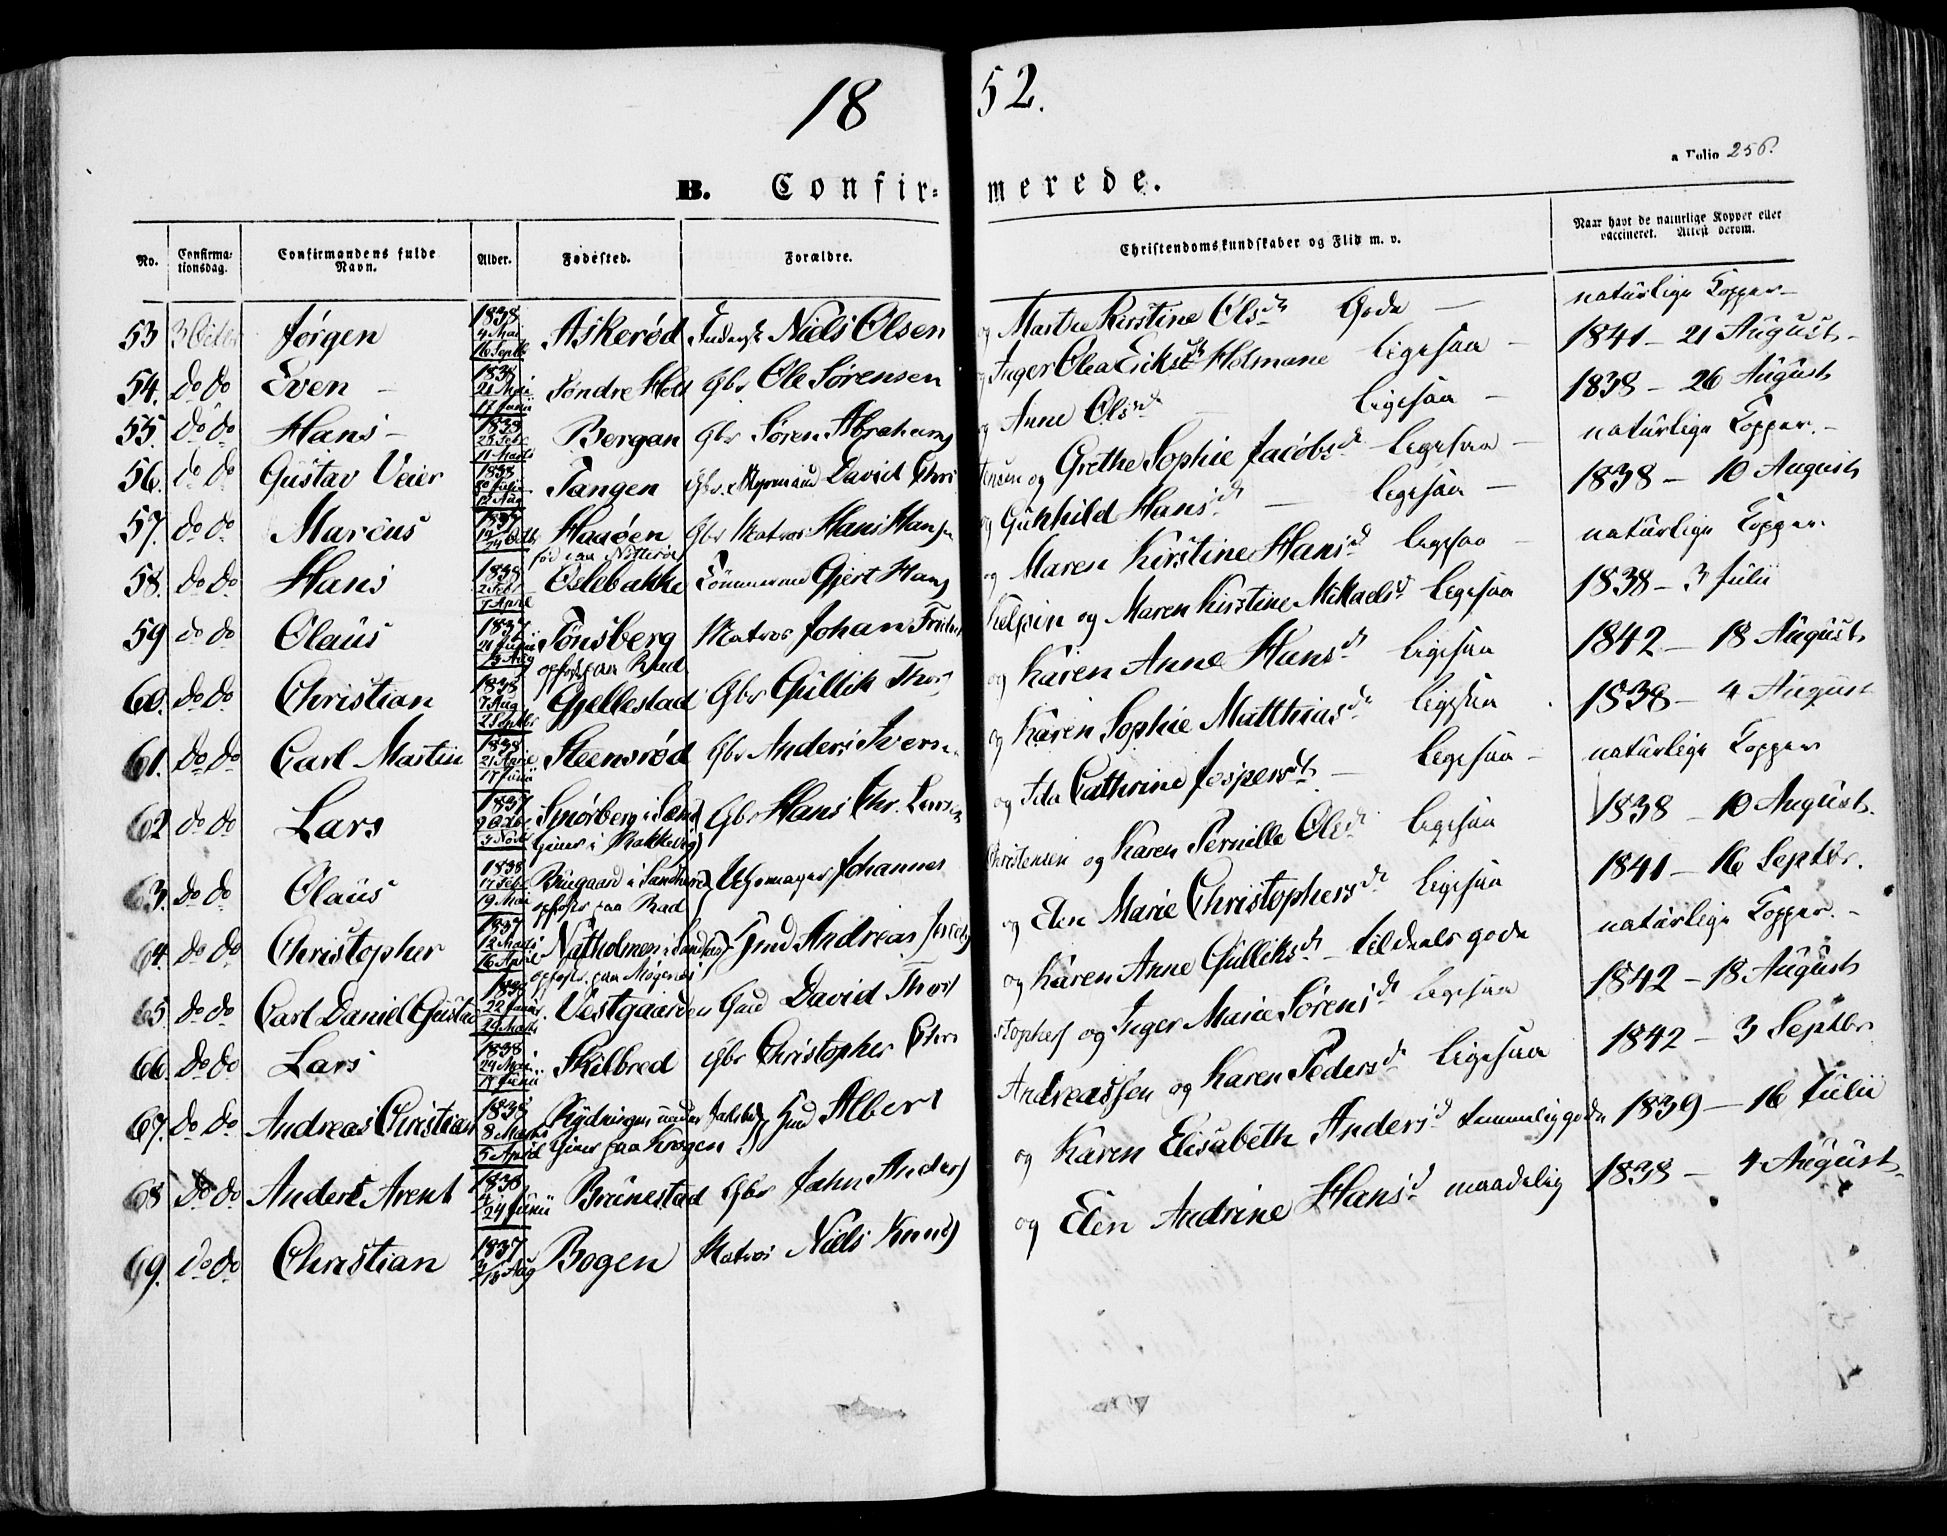 18 52.
a Folio 256.
B. Confir- merede.
No. Confirma-tionsdag. Confirmandens fulde Navn. Alder. Fødested. Forældre. Christendomskundskaber og Flid m. v. Naar havt de naturlige Kopper eller vaccineret. Attest derom.
53 3 Octbr Jørgen 1838 4 Mai 16 Septbr Askerød Niels Olsen og Marthe Kirstine Olsd. Gode — naturlige Kopper —
54. do do Even — 1838 21 Mai 17 Junii Søndre Holt Gbr Ole Sørensen og Inger Olea Eriksd. Holmane ligesaa — 1841 — 21 August —
55. do do Hans — 1838 25 Febr 11 Marts Bergan Gbr Søren Abrahams og Anne Olsd. ligesaa — 1838 — 26 August
56. do do Gustav Veier 1838 12 Aug Tangen Gbr. Styrmand David Chri stensen og Grethe Sophie Jacobsd. ligesaa — naturlige Kopper. —
57. do do Marcus 1837 14 Octbr Haaøen Gbr Matros Hans Hansen og Gunhild Hansd. — ligesaa — 1838 — 10 August
født paa Nøtterøe
58. do do Hans 1838 2 Febr 7 April Oslebakke Tømmermd Gjert Hans og Maren Kirstine Hansd. ligesaa — naturlige Kopper.
59 do do Olaus 1837 21 Junii 13 Aug Tønsberg Matros Johan Fridr Kelpin og Maren Kirstine Mikaelsd. ligesaa 1838 — 3 Julii
opfost. paa Rød
60. do do Christian 1838 7 Aug 2 Septbr Gjellestad Gbr Gullik Thors og Karen Anne Hansd. ligesaa 1842 — 18 August
61. do do Carl Martin 1838 21 April 17 Junii Steensrød Gbr Anders Iversen og Karen Sophie Matthiasd. ligesaa 1838 — 4 August
62 do do Lars 1837 2 Octbr 5 Novbr Smørberg i Sem Gbr Hans Chr. Larsen og Ida Cathrine Jespersd. — ligesaa — naturlige Kopper
tjener i Bakkevei
63. do do Olaus 1838 17 Febr 19 Mai Bugaard i Sandherred Uhrmager Johannes Christensen og Karen Pernille Olsd. ligesaa 1838 — 10 August.
opfost. paa Rød
64. do do Christopher 1837 12 Marts 16 April Natholmen i Sandherred Gmd Andreas Jacobs og Elen Marie Christophersd. ligesaa 1841 — 16 Septbr.
opfost. paa Møgenæs
65 do do Carl Daniel Gustav 1838 22 Januar 29 Marts Vestgaarden Gmd David Thors og Karen Anne Gulliksd. — tildeels gode naturlige Kopper. —
66. do do Lars 1838 24 Mai 17 Junii Skilbred Gbr Christopher Chri stophers og Inger Marie Sørensd. ligesaa 1842 — 18 August
67. do do Andreas Christian 1838 8 Marts 5 April Rydningen under Jarlsberg Gmd Albert Andreassen og Karen Pedersd. ligesaa 1842 — 3 Septbr
tjener paa Krogen
68 do do Anders Arent 1838 24 Junii Brunestad Gbr John Anders og Karen Elisabeth Andersd. temmelig gode 1839 — 16 Julii
69. do do Christian 1837 13 Aug Bogen Matros Niels Knuds og Elen Andrine Hansd. maadelig 1838 — 4 August.